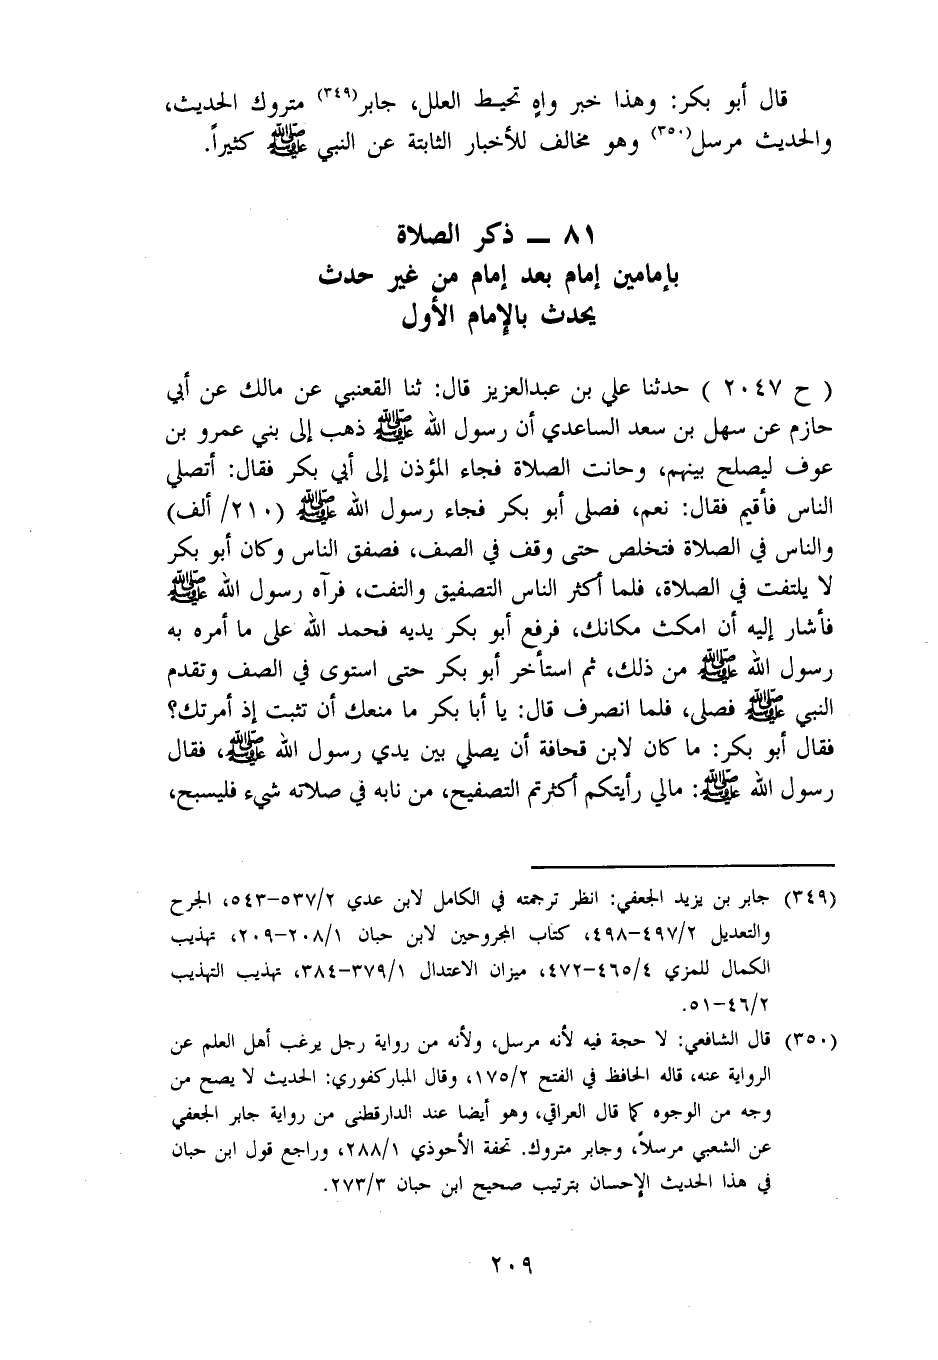 قال أبو بكر: وهذا خبر واهٍ تحيط العلل، جابر(٣٤٩) متروك الحديث،
والحديث مرسل(٣٥٠) وهو مخالف للأخبار الثابتة عن النبي ﷺ كثيراً.
٨١ ــ ذكر الصلاة
بإمامين إمام بعد إمام من غير حدث
يحدث بالإمام الأول
( ح ٢٠٤٧ ) حدثنا علي بن عبدالعزيز قال: ثنا القعنبي عن مالك عن أبي
حازم عن سهل بن سعد الساعدي أن رسول الله ﷺ ذهب إلى بني عمرو بن
عوف ليصلح بينهم، وحانت الصلاة فجاء المؤذن إلى أبي بكر فقال: أتصلي
الناس فأقيم فقال: نعم، فصلى أبو بكر فجاء رسول الله ﷺ (٢١٠/ ألف)
والناس في الصلاة فتخلص حتى وقف في الصف، فصفق الناس وكان أبو بكر
لا يلتفت في الصلاة، فلما أكثر الناس التصفيق والتفت، فرآه رسول الله ﷺ
فأشار إليه أن امكث مكانك، فرفع أبو بكر يديه فحمد الله على ما أمره به
رسول الله ﷺ من ذلك، ثم استأخر أبو بكر حتى استوى في الصف وتقدم
النبي ﷺ فصلى، فلما انصرف قال: يا أبا بكر ما منعك أن تثبت إذ أمرتك؟
فقال أبو بكر: ما كان لابن قحافة أن يصلي بين يدي رسول الله ﷺ، فقال
رسول الله ﷺ: مالي رأيتكم أكثرتم التصفيح، من نابه في صلاته شيء فليسبح،
(٣٤٩) جابر بن يزيد الجعفي: انظر ترجمته في الكامل لابن عدي ٥٣٧/٢–٥٤٣، الجرح
والتعديل ٤٩٧/٢–٤٩٨، كتاب المجروحين لابن حبان ٢٠٨/١–٢٠٩، تهذيب
الكمال للمزي ٤٦٥/٤–٤٧٢، ميزان الاعتدال ٣٧٩/١–٣٨٤، تهذيب التهذيب
٤٦/٢–٥١.
(٣٥٠) قال الشافعي: لا حجة فيه لأنه مرسل، ولأنه من رواية رجل يرغب أهل العلم عن
الرواية عنه، قاله الحافظ في الفتح ١٧٥/٢، وقال المباركفوري: الحديث لا يصح من
وجه من الوجوه كما قال العراقي، وهو أيضا عند الدارقطنى من رواية جابر الجعفي
عن الشعبي مرسلاً، وجابر متروك. تحفة الأحوذي ٢٨٨/١، وراجع قول ابن حبان
في هذا الحديث الإحسان بترتيب صحيح ابن حبان ٢٧٣/٣.
٢٠٩